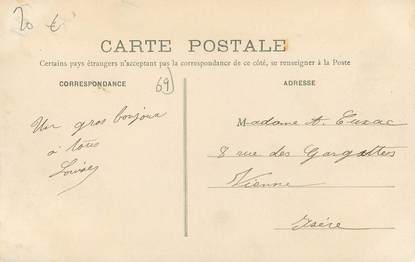 20 €
CARTE POSTALE
Certains pays étrangers n'acceptant pas la correspondance de ce côté, se renseigner à la Poste
CORRESPONDANCE
69
ADRESSE
Un gros bonjour
à tous
Louise
Madame A. Cuzac
8 rue des Gargattes
Vienne
Isère